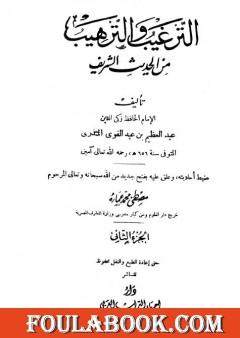 الترغيب والترهيب
من الحديث الشريف
تأليف
الإمام الحافظ زكى الدين
عبد العظيم بن عبد القوى المنذرى
المتوفى سنة ٦٥٦ هـ، رحمه الله تعالى آمين
ضبط أحاديثه، وعلق عليه بفتح جديد من الله سبحانه وتعالى المرحوم
مصطفى محمد عمارة
خريج دار العلوم ومن كبار مدرسى وزارة المعارف المصرية
الجزء الثانى
حق إعادة الطبع والنقل محفوظ
للناشر
دار
التراث العربى
FOULABOOK.COM